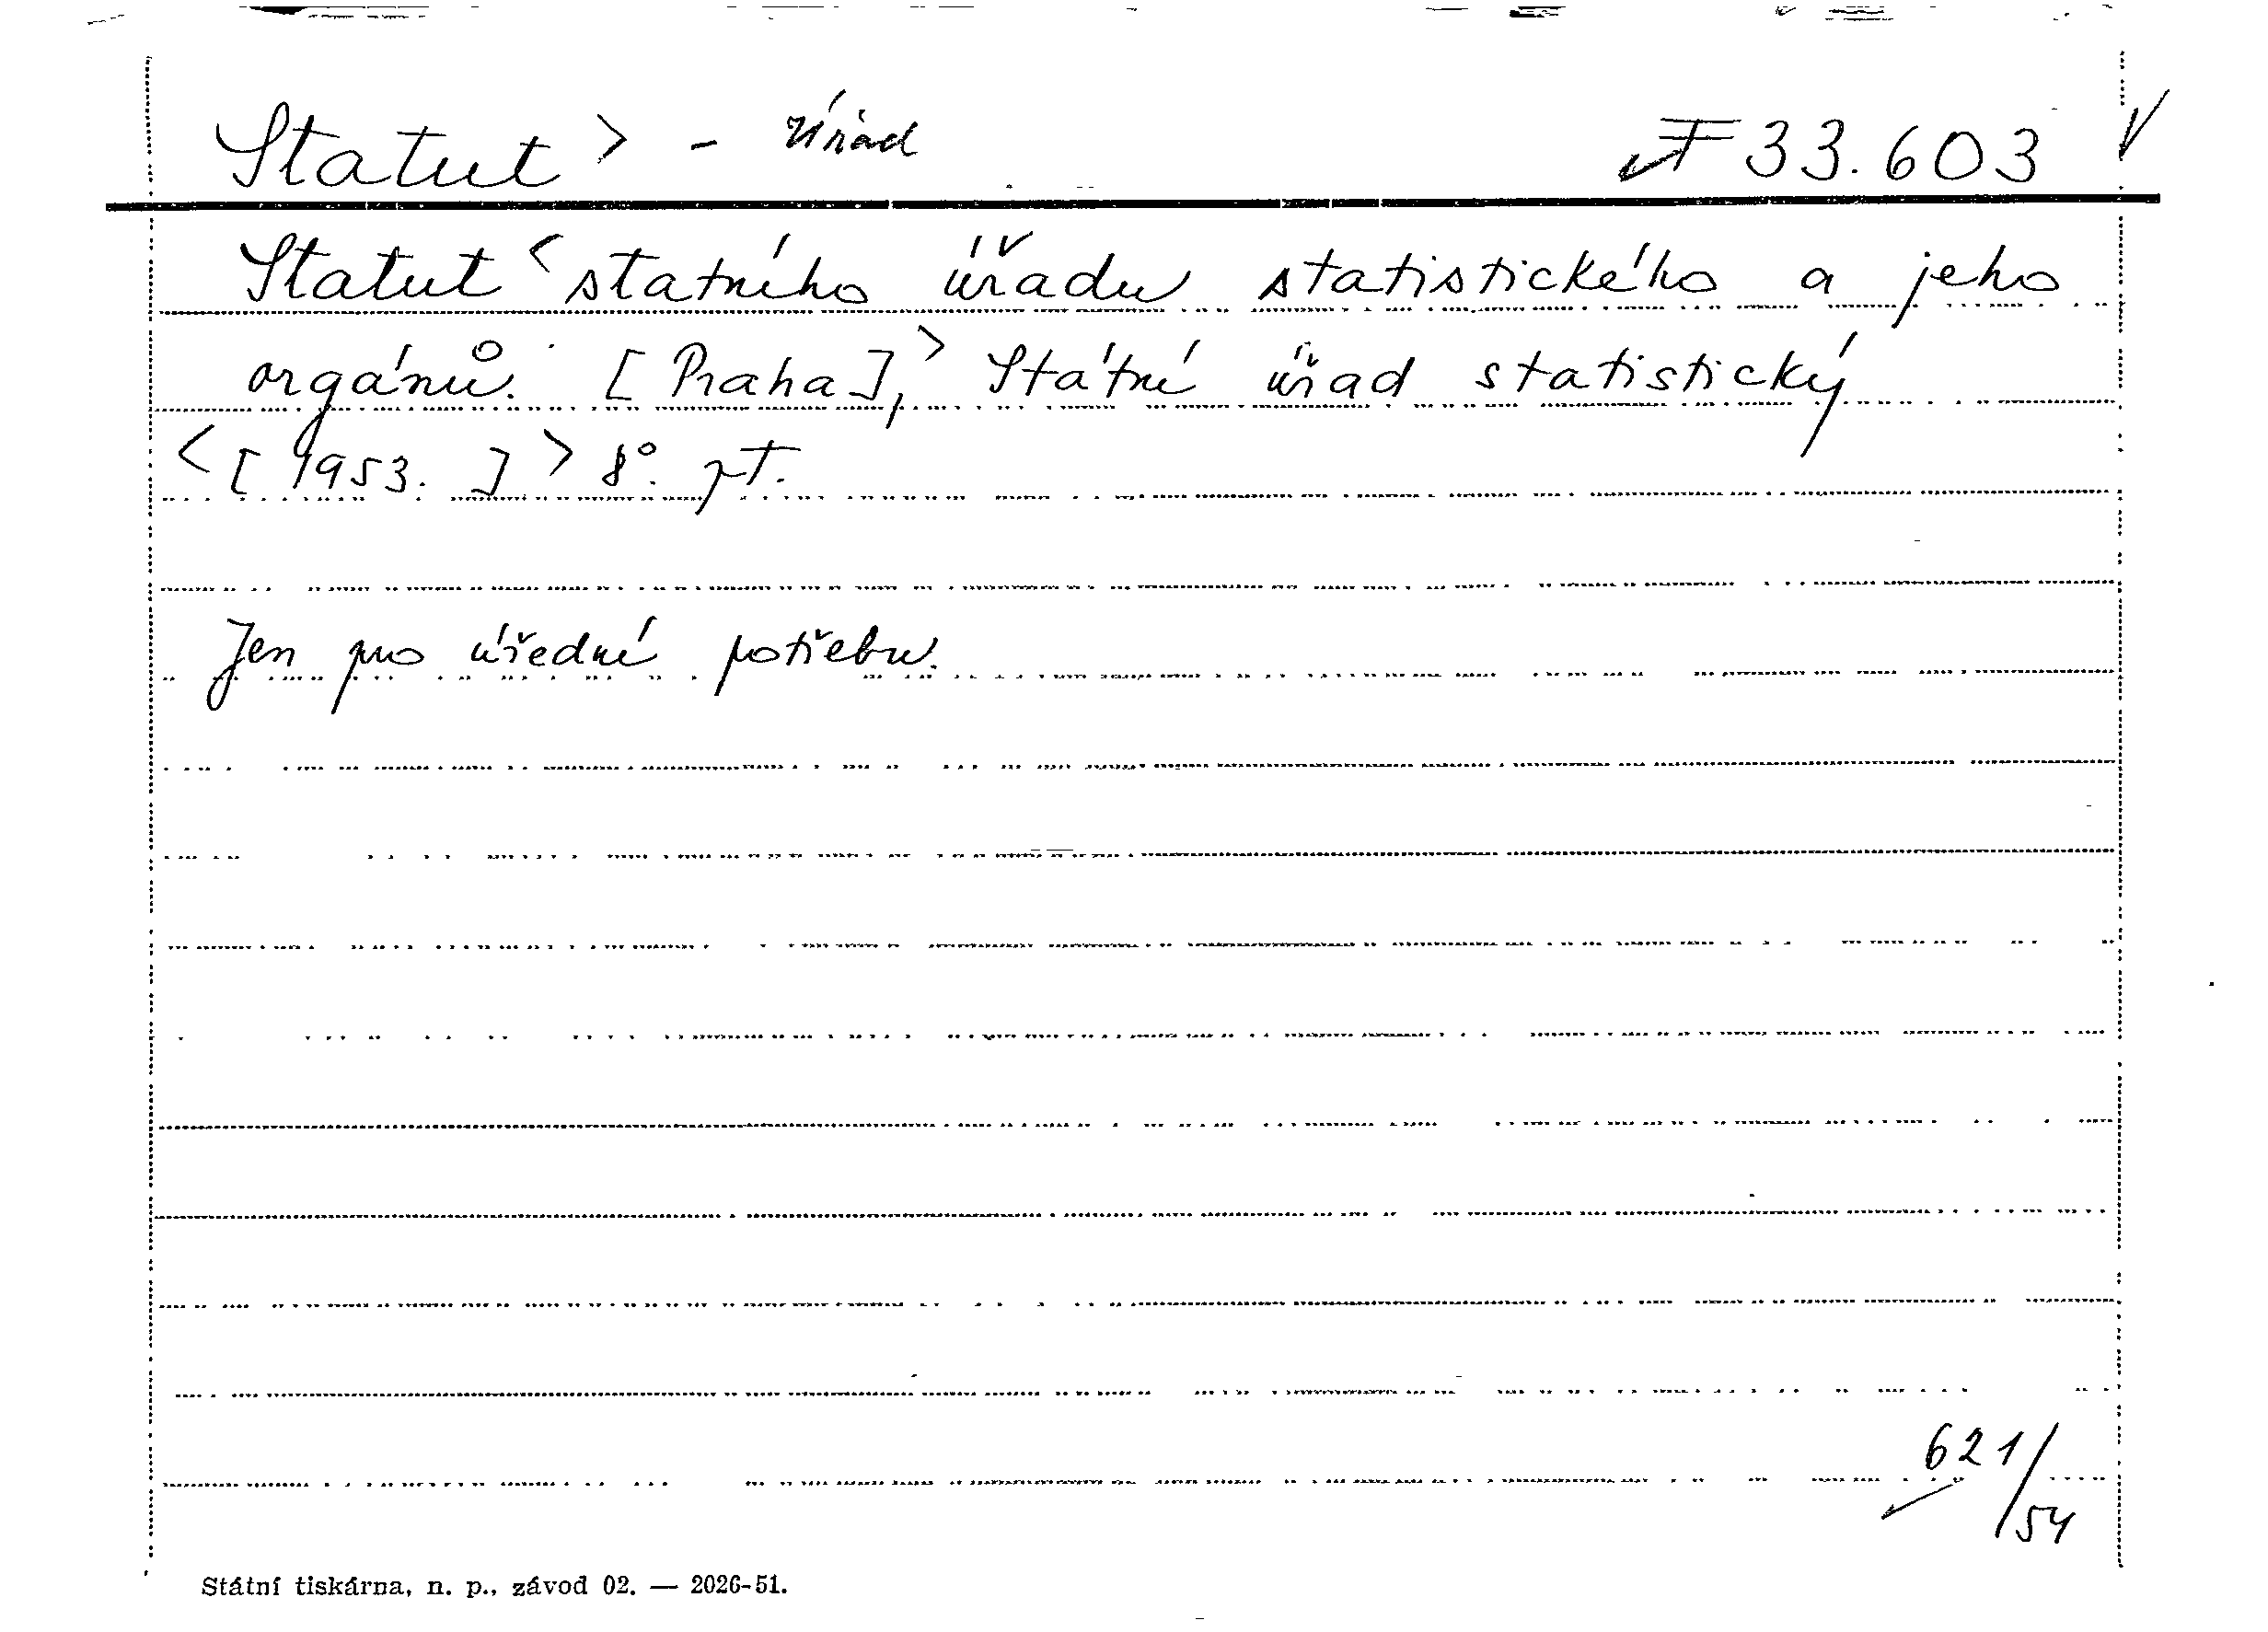 Statut > - Úřad F 33.603
Statut < státního úřadu statistického a jeho
orgánů. [Praha], > Státní úřad statistický
< [1953. ] > 8°. pt.
Jen pro úřední potřebu.
621/54
Státní tiskárna, n. p., závod 02. — 2026-51.